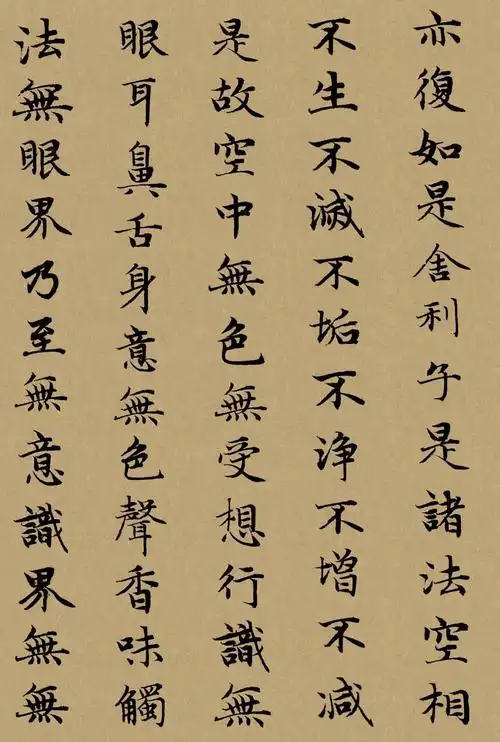 亦復如是舍利子是諸法空相
不生不滅不垢不净不增不減
是故空中無色無受想行識無
眼耳鼻舌身意無色聲香味觸
法無眼界乃至無意識界無無